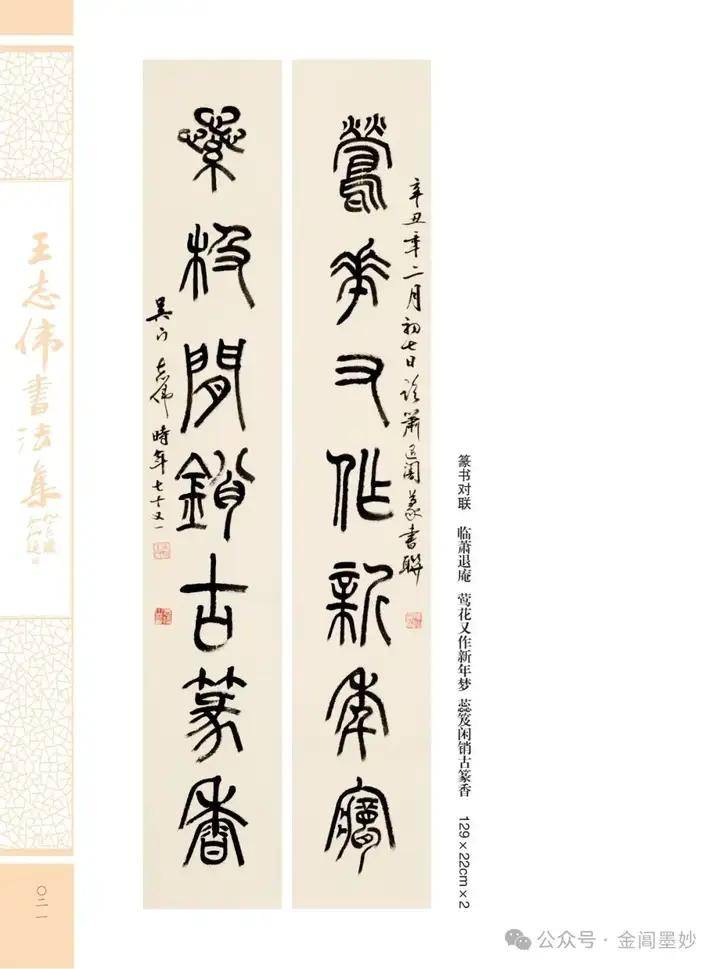 鶯花又作新年夢
辛丑年二月初七日临萧退闇篆書聯
蕊极閒鎖古篆香
吳门志伟時年七十又一
篆书对联 临萧退庵 莺花又作新年梦 蕊笈闲销古篆香 129×22cm×2
王志伟書法集
〇二一
公众号·金阊墨妙